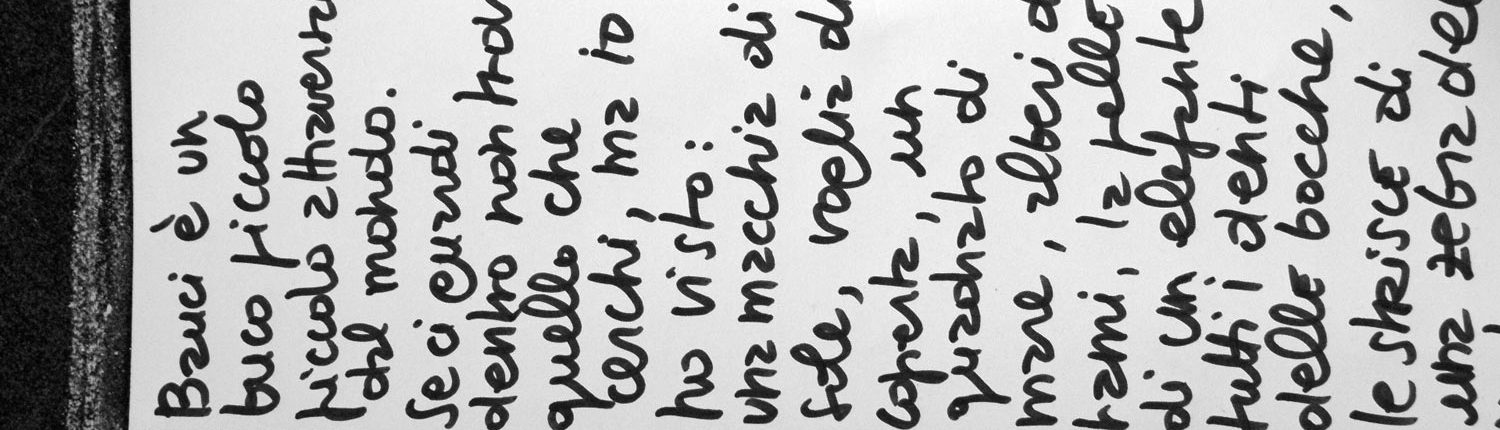 Bauci è un
buco piccolo
piccolo attravers
dal mondo.
Se ci guardi
dentro non trov
quello che
cerchi, ma io
ho visto:
una macchia di
sole, voglia di
coperta, un
quadrato di
mare, alberi d
rami, la pelle
di un elefante
tutti i denti
delle bocche,
le strisce di
una zebra del